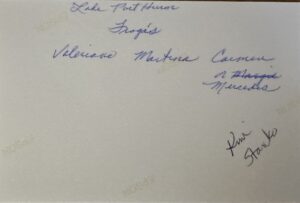 Lake Port Huron
Fraga's
Valeriano Martina Carmen
or Margie
Mercedes
Kim
Stanko